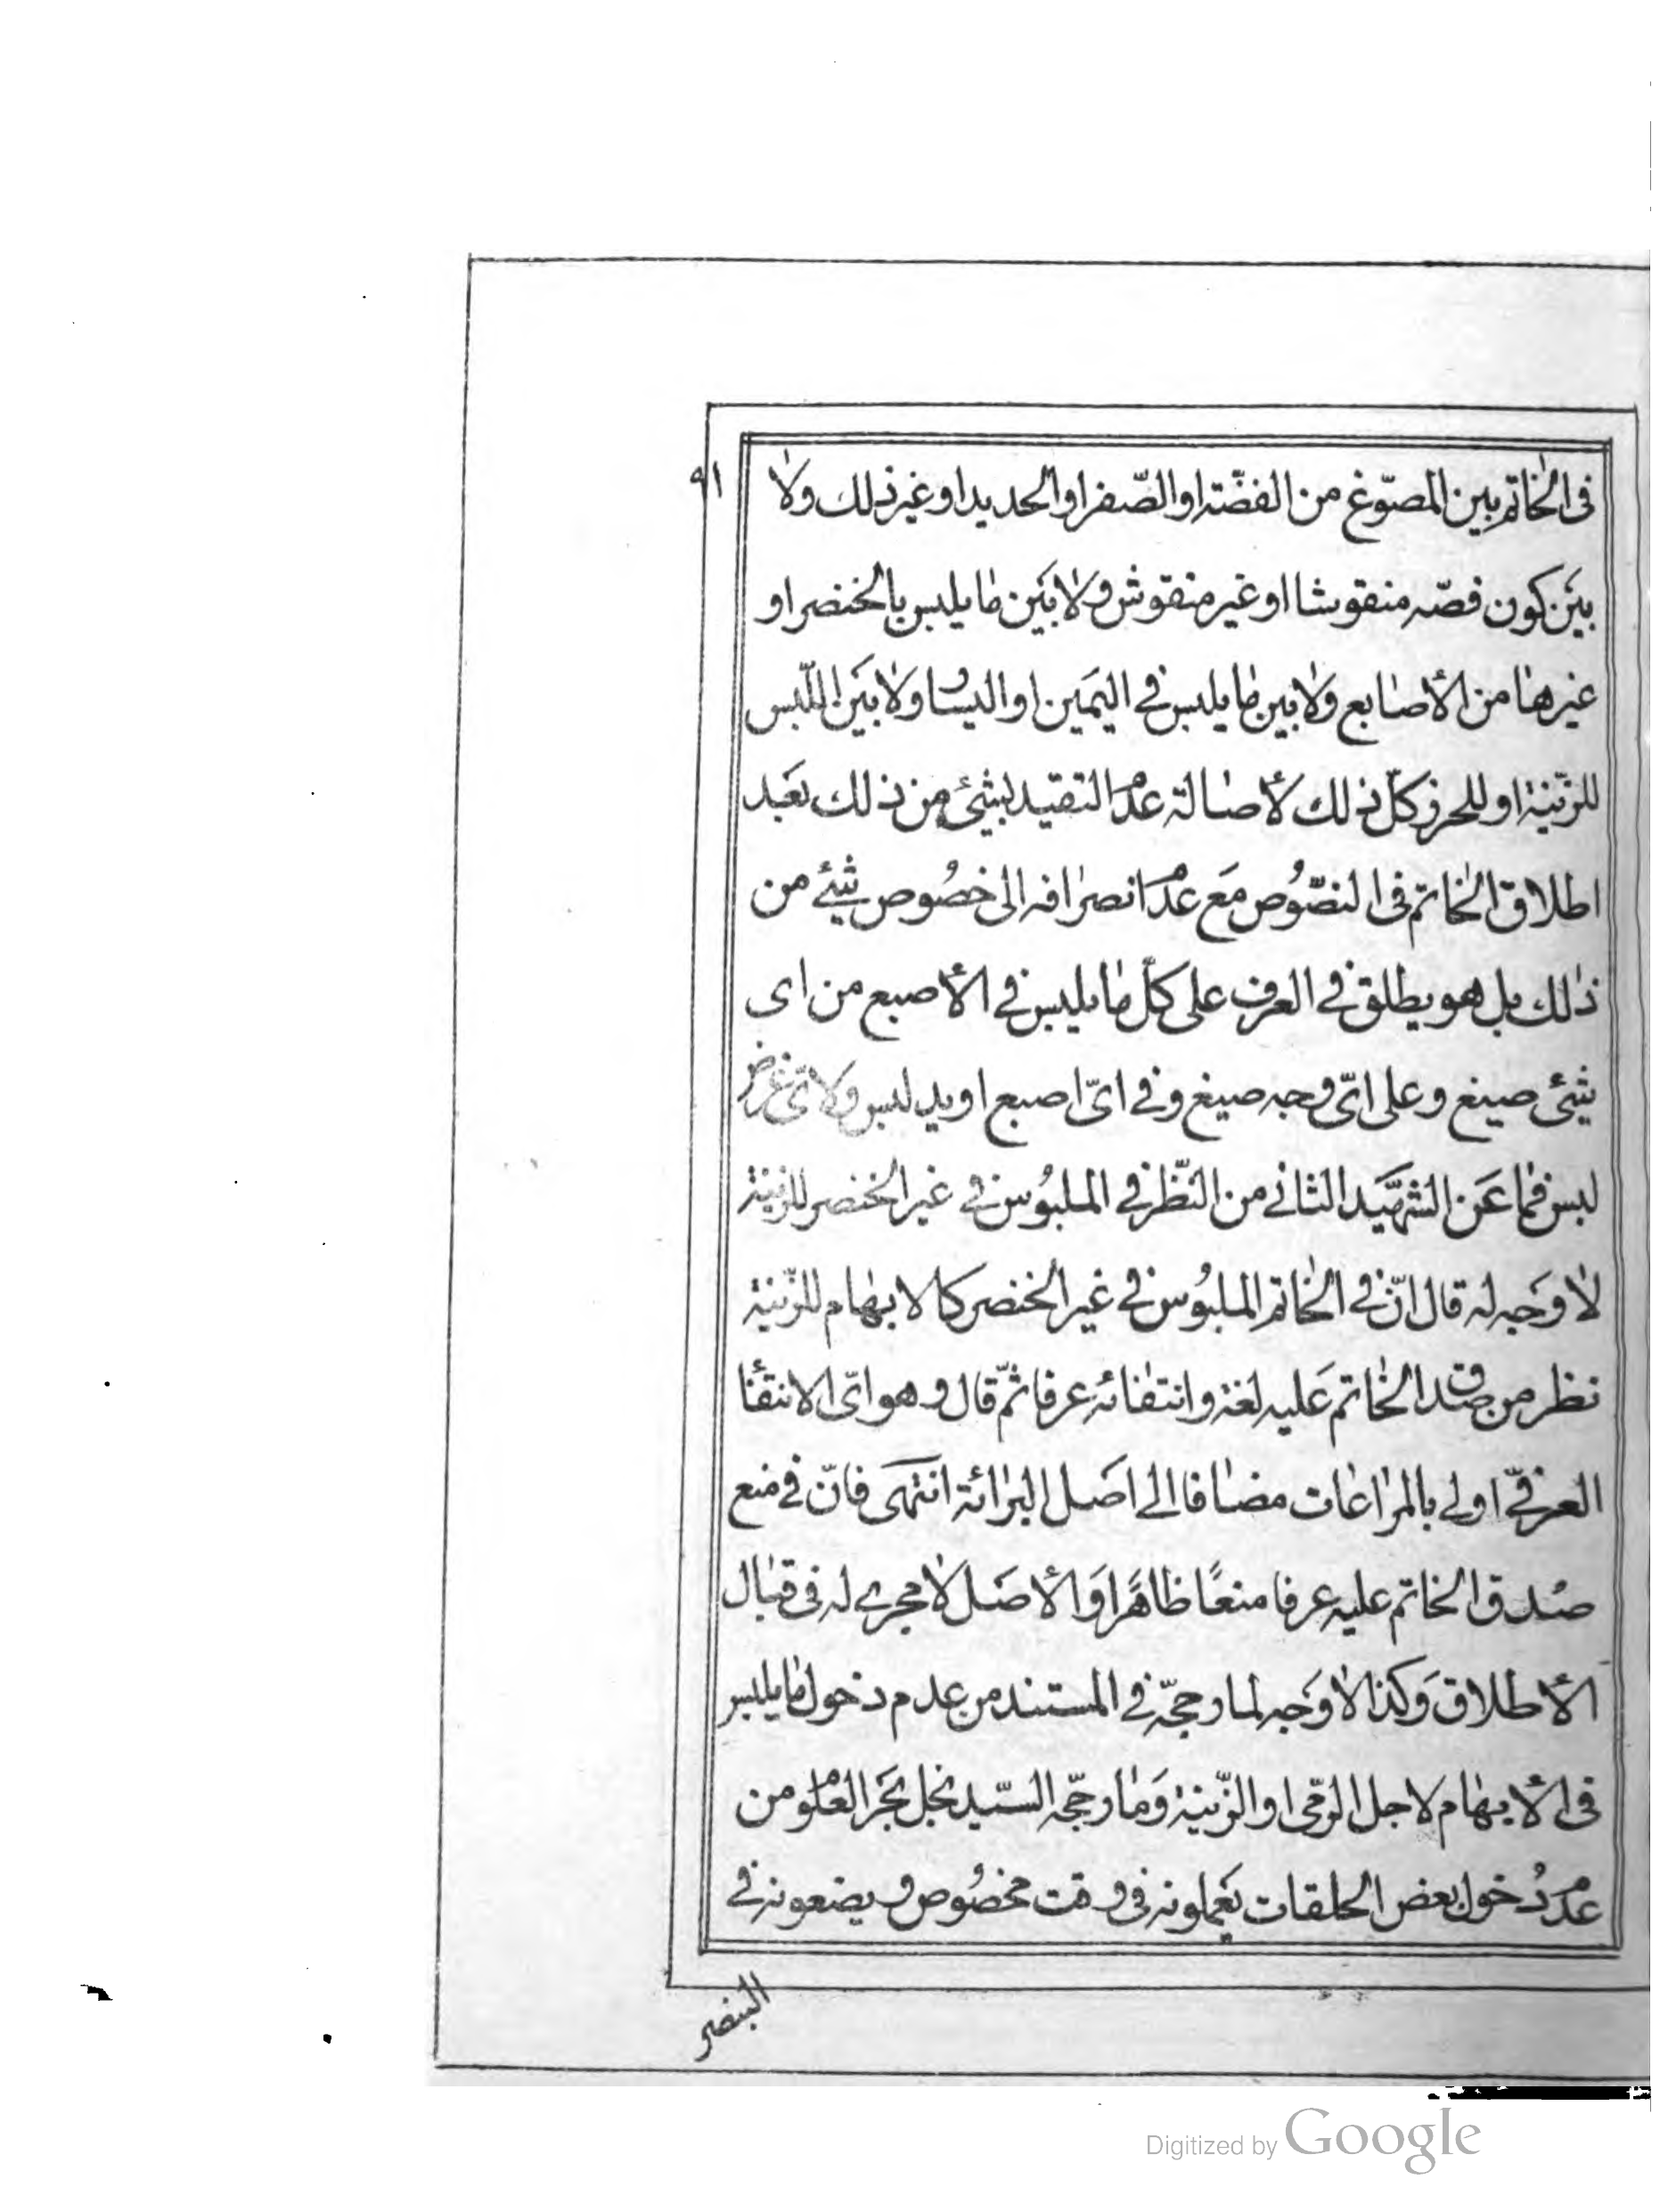 ٩١
فى الخاتم بين المصوّغ من الفضّة او الصّفر او الحديد او غير ذلك ولا
بين كون فصّه منقوشا او غير منقوش ولا بين ما يلبس بالخنصر او
غيرها من الأصابع ولا بين ما يلبس في اليمين او اليسار ولا بين اللّبس
للزّينة او للحرز كلّ ذلك لأصالة عدم التقييد بشئ من ذلك بعد
اطلاق الخاتم فى النصّوص مع عدم انصرافه الى خصوص شئ من
ذلك بل هو يطلق في العرف على كلّ ما يلبس في الأصبع من اى
شئ صيغ وعلى اىّ وجه صيغ وفي اىّ اصبع او يد لبس ولاىّ غرض
لبس فما عن الشهيد الثاني من النّظر في الملبوس في غير الخنصر للزينة
لا وجه له قال انّ في الخاتم الملبوس في غير الخنصر كالابهام للزّينة
نظر من صدق الخاتم عليه لغة وانتفائه عرفا ثمّ قال وهو اىّ الانتفأ
العرفيّ اولى بالمراعات مضافا الى اصل البرائة انتهى فانّ في منع
صدق الخاتم عليه عرفا منعًا ظاهرا والأصل لا مجرى له فى قبال
الأطلاق وكذا لا وجه لما رجّحه في المستند من عدم دخول ما يلبس
فى الأبهام لاجل الرّمى او الزّينة وما رجّحه السّيد نجل بحر العلوم من
عدم دخول بعض الحلقات يعملونه فى وقت مخصوص ويضعونه في
البنصر
Digitized by Google